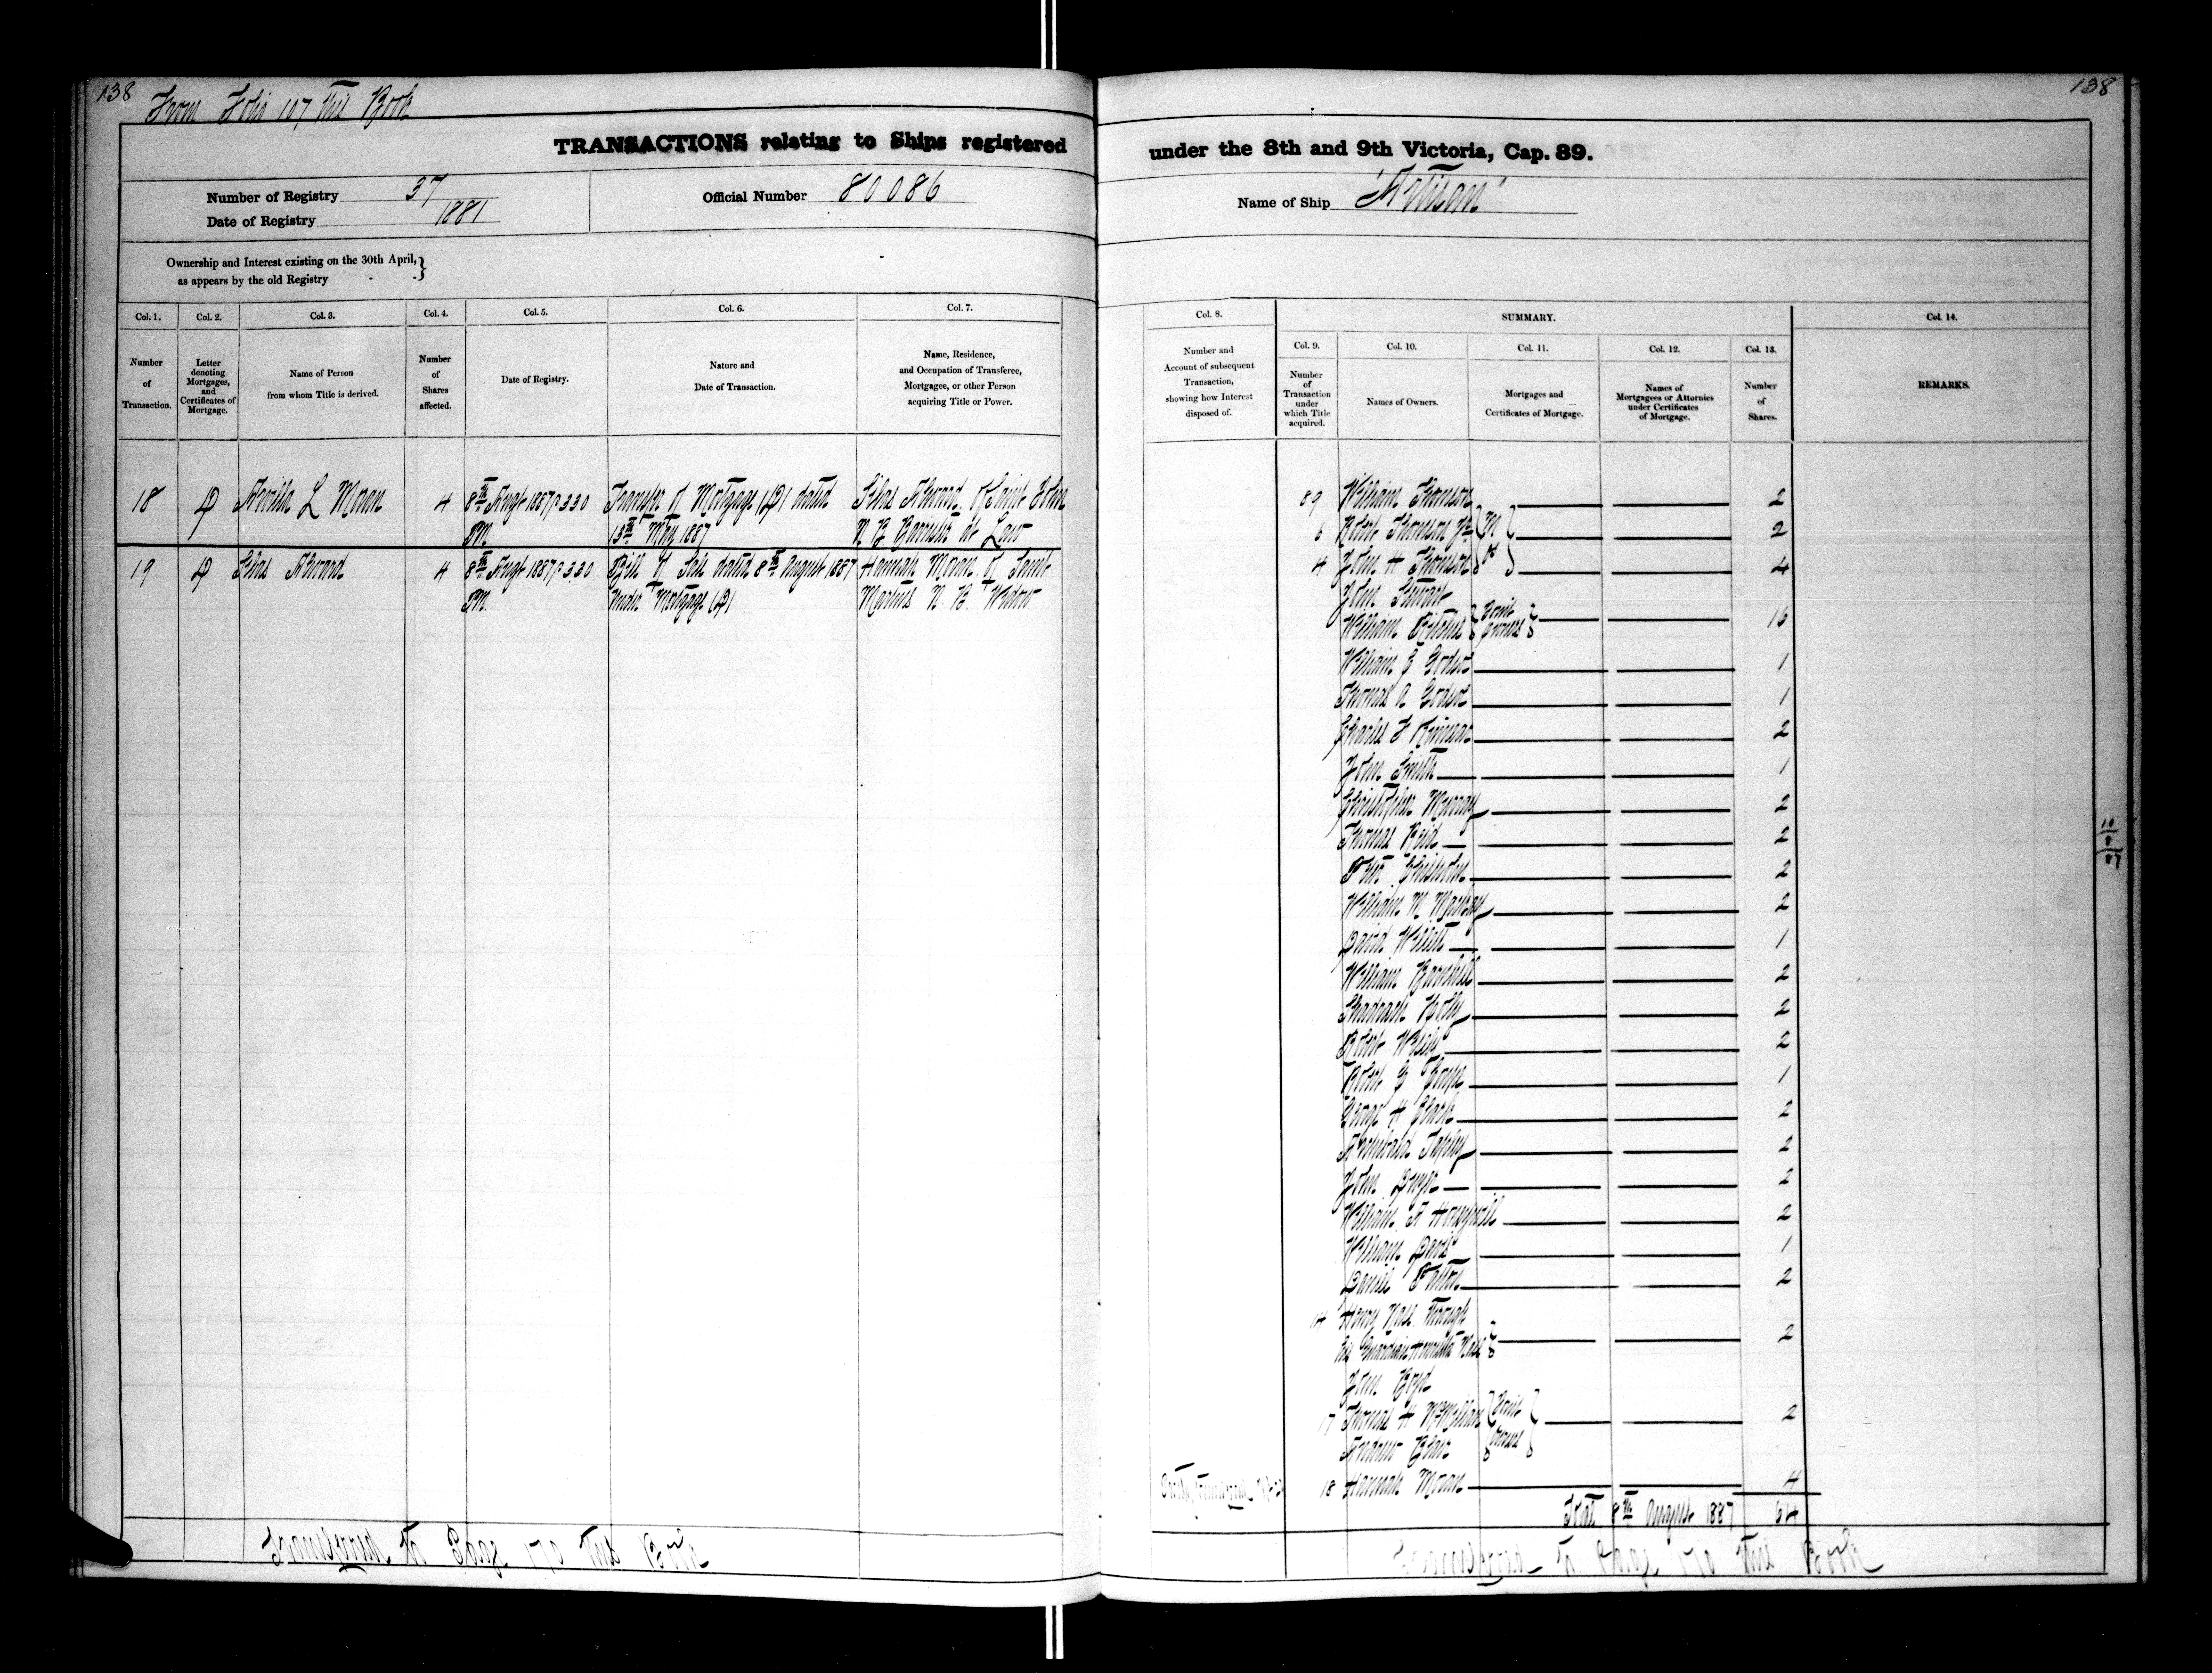 138
From Folio 107 this Book
TRANSACTIONS relating to Ships registered
Number of Registry 37
Date of Registry 1881
Official Number 80086
Ownership and Interest existing on the 30th April,
as appears by the old Registry
Col. 1. Col. 2. Col. 3. Col. 4. Col. 5. Col. 6. Col. 7.
Number of Transaction.
Letter denoting Mortgages, and Certificates of Mortgage.
Name of Person from whom Title is derived.
Number of Shares affected.
Date of Registry.
Nature and Date of Transaction.
Name, Residence, and Occupation of Transferee, Mortgagee, or other Person acquiring Title or Power.
18 D L Moran 4 8th Augt 1887 3.30 Transfer of Mortgage (D) dated Silas Alward of Saint John
PM. 13th May 1887 N B Barrister at Law
19 D Silas Alward 4 8th Augt 1887 3.30 Bill of Sale dated 8th August 1887 Hannah Moran of Saint
PM. Under Mortgage (D) Martins N. B. Widow
Transferred to Page 170 this Book
138
under the 8th and 9th Victoria, Cap. 89.
Name of Ship "Artisan"
Col. 8. SUMMARY. Col. 14.
Number and Account of subsequent Transaction, showing how Interest disposed of.
Col. 9. Col. 10. Col. 11. Col. 12. Col. 13.
Number of Transaction under which Title acquired.
Names of Owners.
Mortgages and Certificates of Mortgage.
Names of Mortgagees or Attornies under Certificates of Mortgage.
Number of Shares.
REMARKS.
89 William Thomson 2
6 Robert Thomson Jr 2
4 John H Thomson 4
John Stewart
William Joint Owners 16
William 1
Thomas 1
Charles F Kinnear 2
John Smith 1
Christopher Murray 2
Thomas Reid 2
Chisholm 2
William M Mackay 2
David Willett 1
William Barnhill 2
Shadrach Holly 2
Robert 2
Robert G 1
George H Clark 2
Archibald Tapley 2
John 2
William A Honeywill 2
William Davis 1
Daniel Patton 2
14 Henry Nase through
his Guardian Henrietta Nase 2
John Boyd
17 Thomas H McMillan Joint Owners 2
Andrew Blair
18 Hannah Moran 4
Total 8th August 1887 64
10/8/87
Transferred to Page 170 this Book